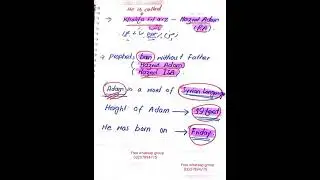 He is called
Khalifa Fil arz - Hazrat Adam
(RA)
Prophets born without Father
Hazrat Adam
Hazrat ISA
Adam is a word of Syrian language
Height of Adam → 
He was born on → Friday
Free whatsapp group
03207894775
Free whatsapp group
03207894775